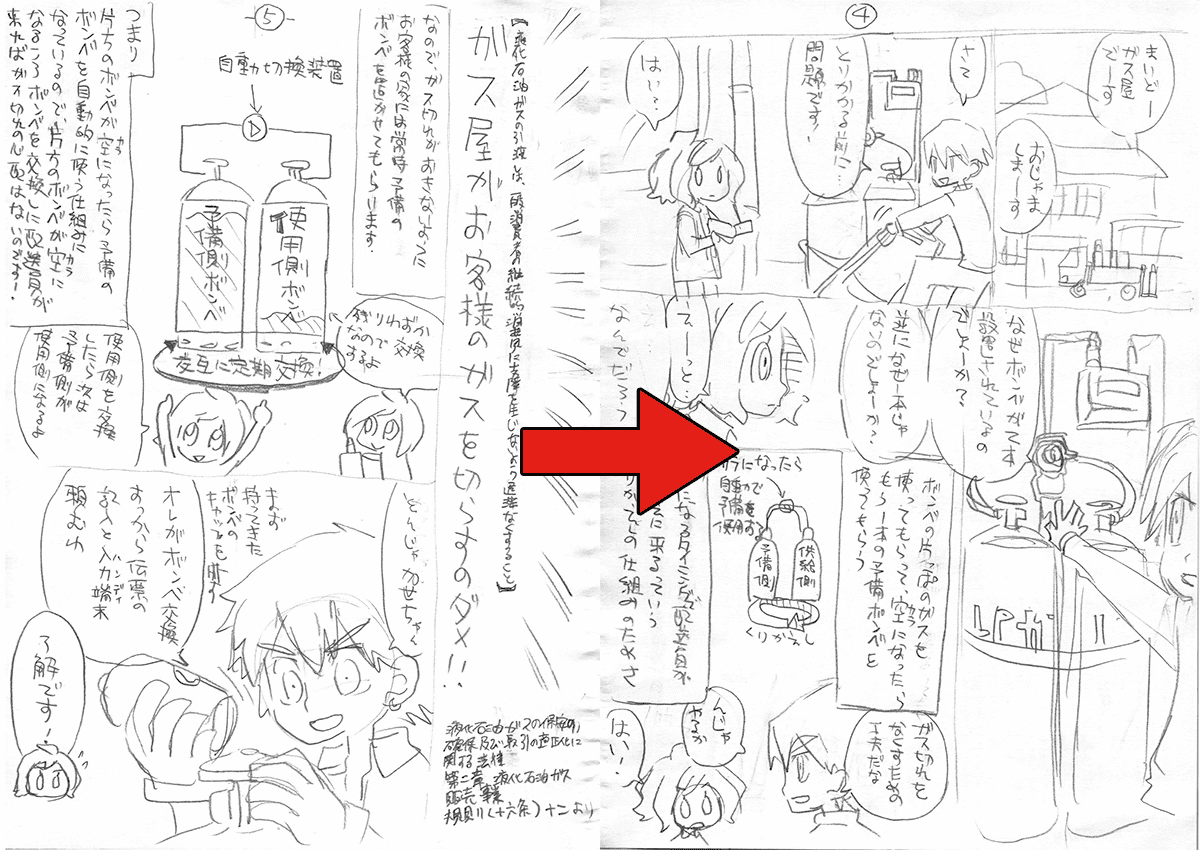 ⑤
ガス屋がお客様のガスを切らすのダメ!!
液化石油ガスの保安の
確保及び取引の適正化に
関する法律
第二章 液化石油ガス
販売事業
規則(十六条)十二より
なので、ガス切れがおきないように
お客様の家には常時予備の
ボンベを置かせてもらいます.
自動切換装置
使用側ボンベ
予備側ボンベ
交互に定期交換!
残りわずか
なので交換
するよ
つまり
片方のボンベが空になったら予備の
ボンベを自動的に使う仕組みに
なっているので、片方のボンベが空に
なるころボンベを交換しに配送員が
来ればガス切れの心配はないのです!
使用側を交換
したら次は
予備側が
使用側になるよ
そんじゃかせちゃん
まず
持ってきた
ボンベの
オレがボンベ交換
すっから伝票の
記入と入力端末
ハンディ
頼むわ
了解です!
④
まいどー
ガス屋
でーす
おじゃま
しまーす
さて
とりかかる前に…
問題です!
はい?
なぜボンベがて本
設置されているの
でしょーか?
並になぜ一本じゃ
ないのでしょーか?
てーっと…
なんでだろう
ボンベの片っぽのガスを
使ってもらって、空になったら
カラ
もう一本の予備ボンベを
使ってもらう
カラになったら
自動で
予備を
使用する
供給側
予備側
くりかえし
になるタイミングで配送員が
に来るっていう
仕組みのためさ
LPガ
ガス切れを
なくすための
工夫だな
んじゃ
やるか
はい!